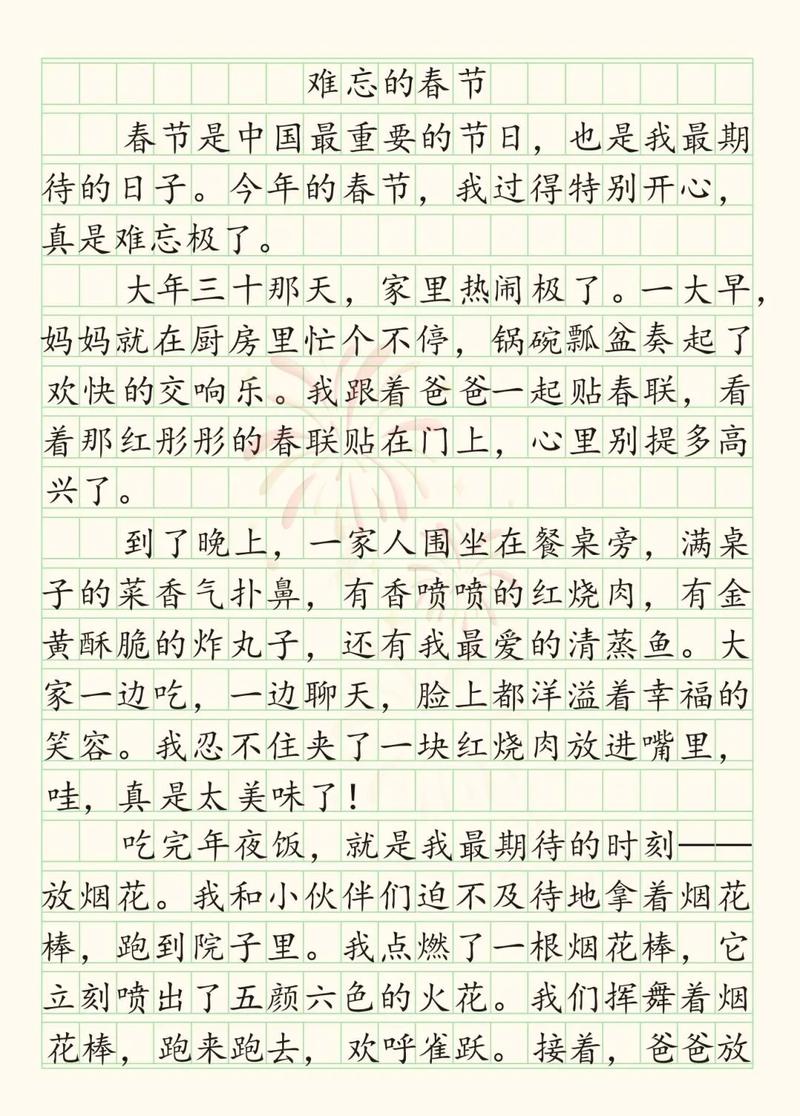 难忘的春节
春节是中国最重要的节日，也是我最期
待的日子。今年的春节，我过得特别开心，
真是难忘极了。
大年三十那天，家里热闹极了。一大早，
妈妈就在厨房里忙个不停，锅碗瓢盆奏起了
欢快的交响乐。我跟着爸爸一起贴春联，看
着那红彤彤的春联贴在门上，心里别提多高
兴了。
到了晚上，一家人围坐在餐桌旁，满桌
子的菜香气扑鼻，有香喷喷的红烧肉，有金
黄酥脆的炸丸子，还有我最爱的清蒸鱼。大
家一边吃，一边聊天，脸上都洋溢着幸福的
笑容。我忍不住夹了一块红烧肉放进嘴里，
哇，真是太美味了！
吃完年夜饭，就是我最期待的时刻——
放烟花。我和小伙伴们迫不及待地拿着烟花
棒，跑到院子里。我点燃了一根烟花棒，它
立刻喷出了五颜六色的火花。我们挥舞着烟
花棒，跑来跑去，欢呼雀跃。接着，爸爸放